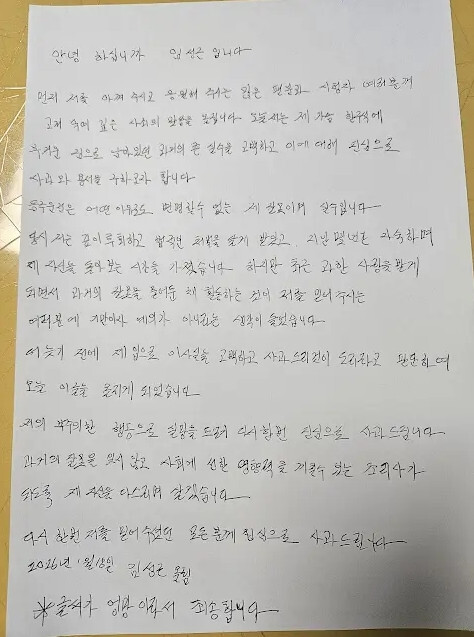 안녕 하십니까 임성근 입니다
먼저 저를 아껴 주시고 응원해 주시는 많은 팬분과 시청자 여러분께
고개 숙여 깊은 사죄의 말씀을 올립니다 오늘 저는 제 가슴 한구석에
무거운 짐으로 남아있던 과거의 큰 실수를 고백하고 이에 대해 진심으로
사과와 용서를 구하고자 합니다
음주운전은 어떤 이유로도 변명할수 없는 제 잘못이며 실수입니다
당시 저는 깊이 후회하고 법적인 처벌을 달게 받았고, 지난 몇년간 자숙하며
제 자신을 돌아 보는 시간을 가졌습니다 하지만 최근 과한 사랑을 받게
되면서 과거의 잘못을 묻어둔 채 활동하는 것이 저를 믿어 주시는
여러분에 기만이자 예의가 아니라는 생각이 들었습니다
더 늦기 전에 제 입으로 이사실을 고백하고 사과드리것이 도리라고 판단하여
오늘 이글을 올리게 되었습니다
저의 부주의한 행동으로 실망을 드려 다시한번 진심으로 사과드립니다
과거의 잘못을 잊지 않고 사회에 선한 영향력을 끼칠수 있는 조리사가
되도록 제 자신을 다스리며 살겠습니다
다시 한번 저를 믿어주셨던 모든분께 진심으로 사과드립니다
2026년 1월18일 임성근 올림
※글씨가 엉망 이라서 죄송합니다